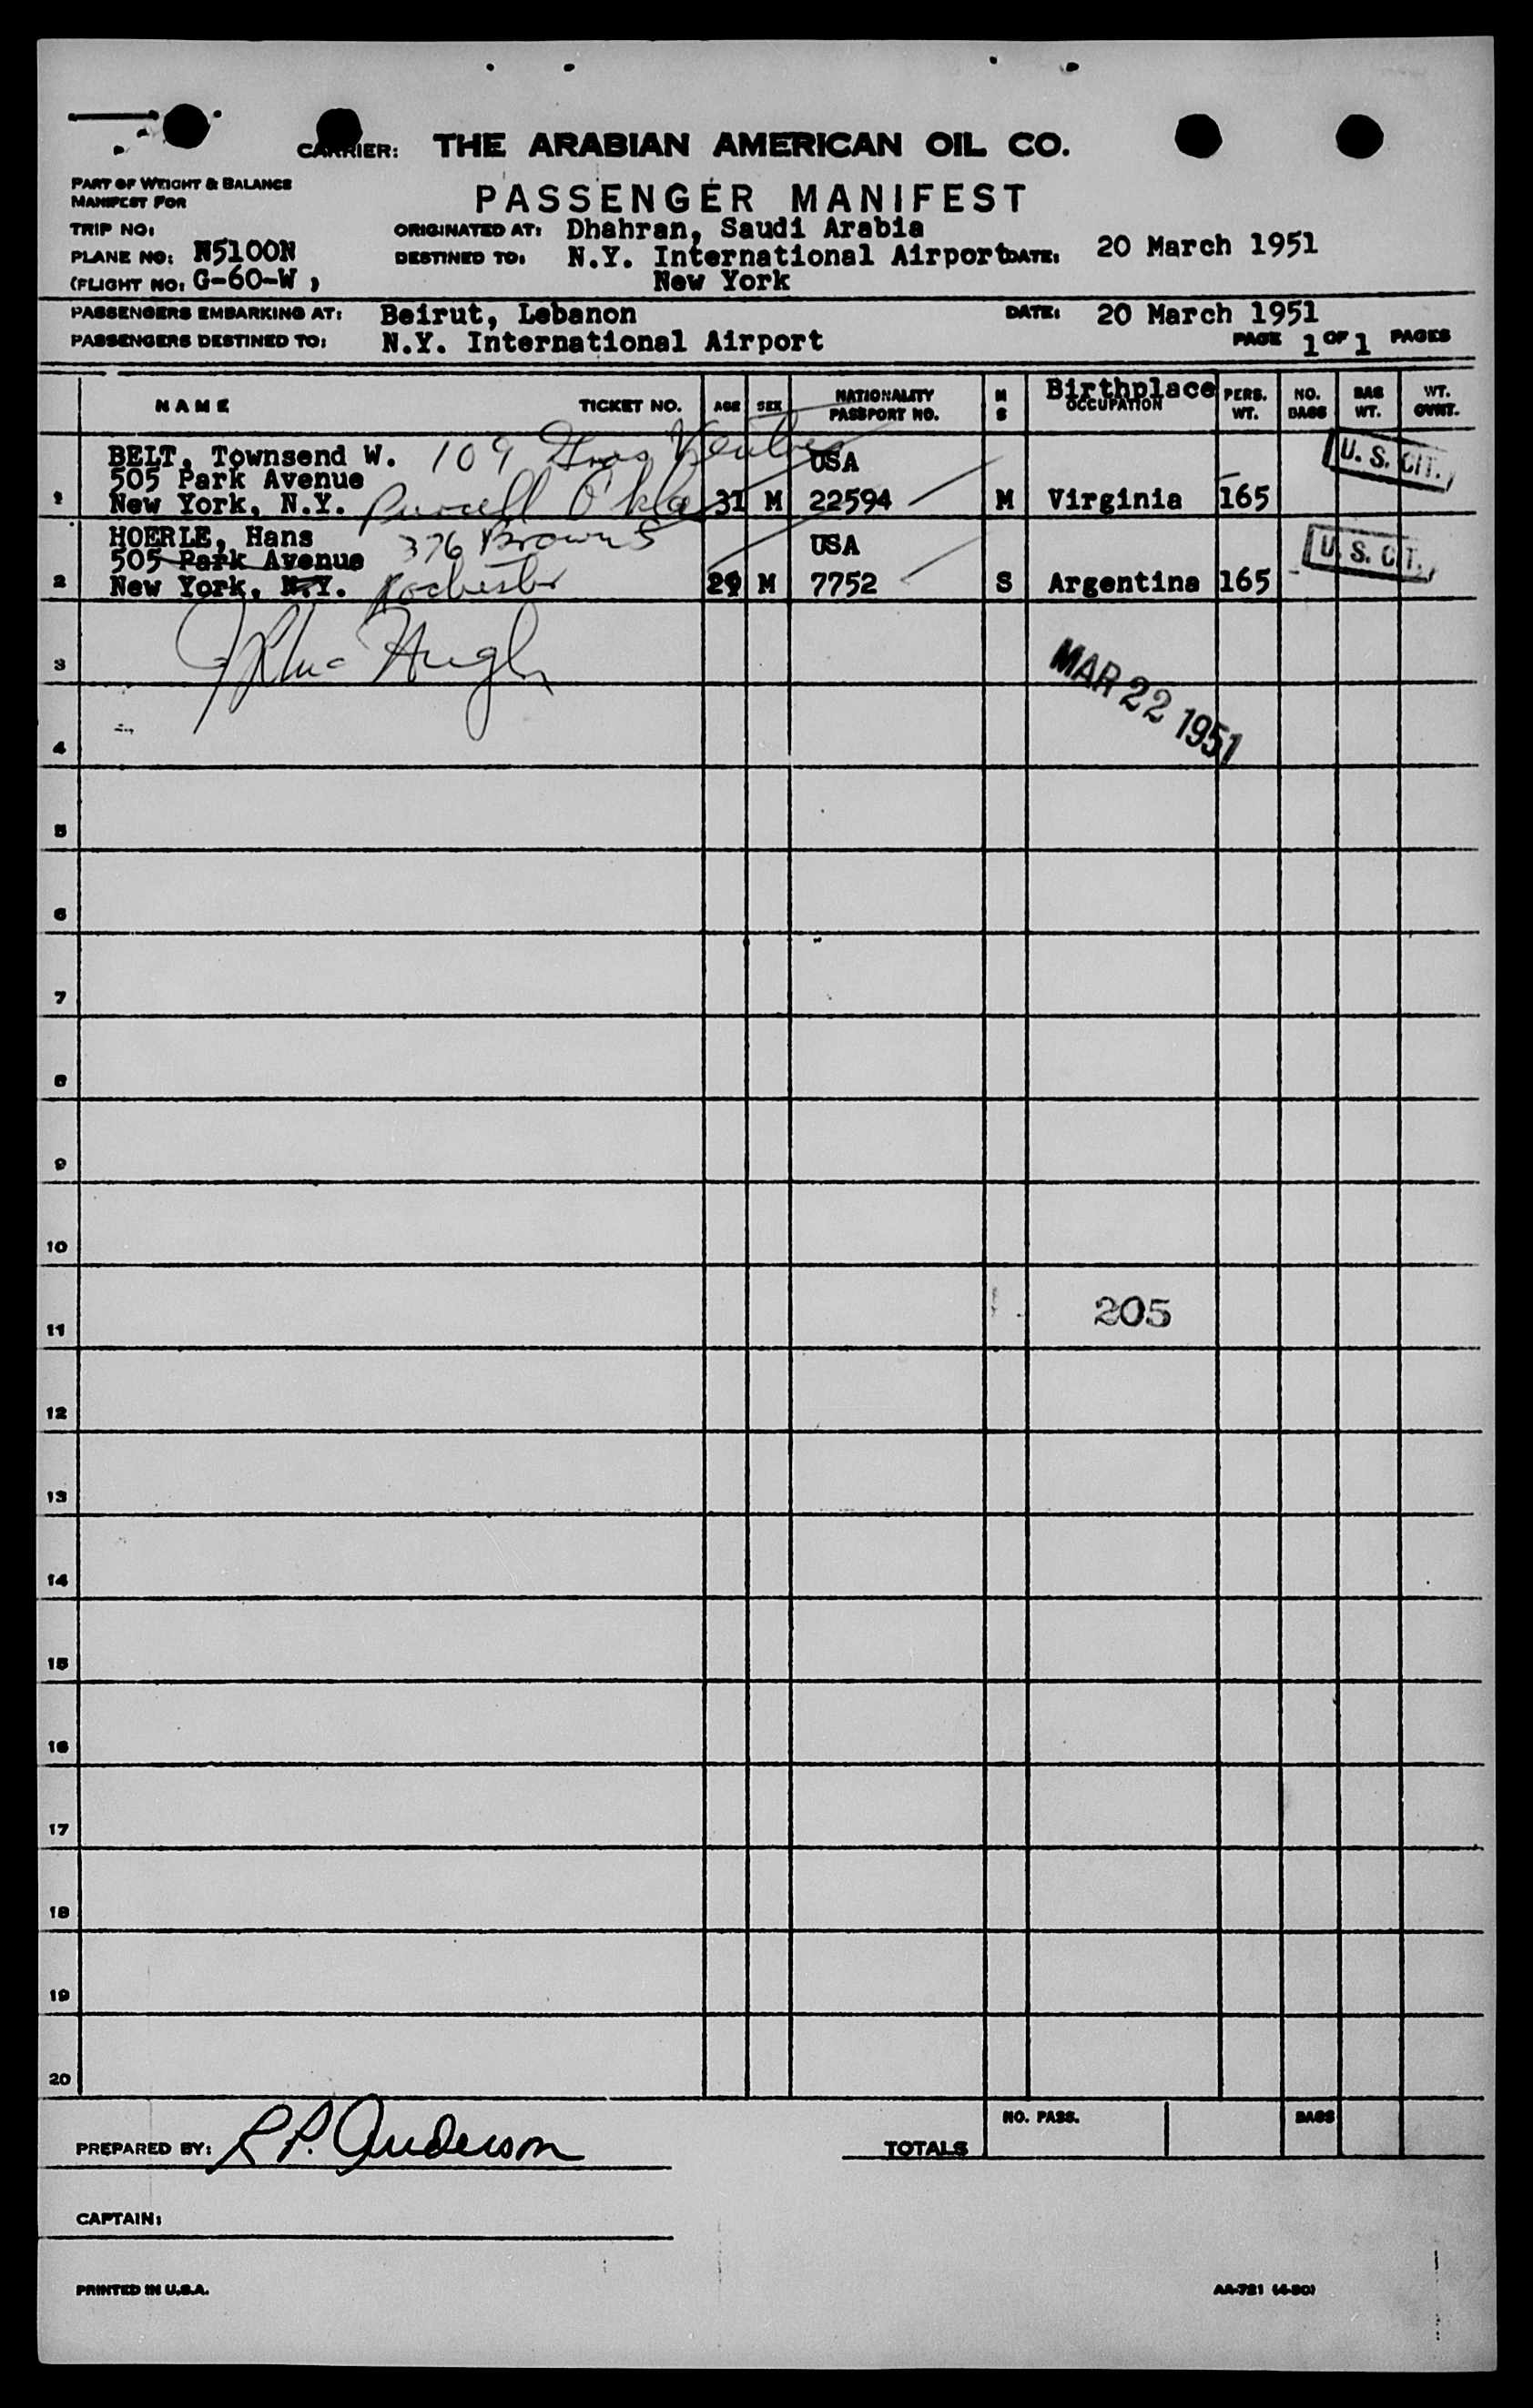 CARRIER: THE ARABIAN AMERICAN OIL CO.
PART OF WEIGHT & BALANCE
MANIFEST FOR
PASSENGER MANIFEST
TRIP NO:
ORIGINATED AT: Dhahran, Saudi Arabia
PLANE NO: N5100N
DESTINED TO: N.Y. International Airport DATE: 20 March 1951
(FLIGHT NO: G-60-W )
New York
PASSENGERS EMBARKING AT: Beirut, Lebanon DATE: 20 March 1951
PASSENGERS DESTINED TO: N.Y. International Airport PAGE 1 OF 1 PAGES
NAME TICKET NO. AGE SEX NATIONALITY PASSPORT NO. M S Birthplace OCCUPATION PERS. WT. NO. BAGS BAG WT. WT. OVWT.
BELT, Townsend W. 109 USA U. S. CIT.
505 Park Avenue
1 New York, N.Y. Purcell Okla 31 M 22594 M Virginia 165
HOERLE, Hans 376 Brown S USA U. S. CIT.
505 Park Avenue
2 New York, N.Y. Rochester 29 M 7752 S Argentina 165
3
MAR 22 1951
4
5
6
7
8
9
10
11 205
12
13
14
15
16
17
18
19
20
NO. PASS. BAGS
PREPARED BY: R P. Anderson TOTALS
CAPTAIN:
PRINTED IN U.S.A. AA-721 (4-50)